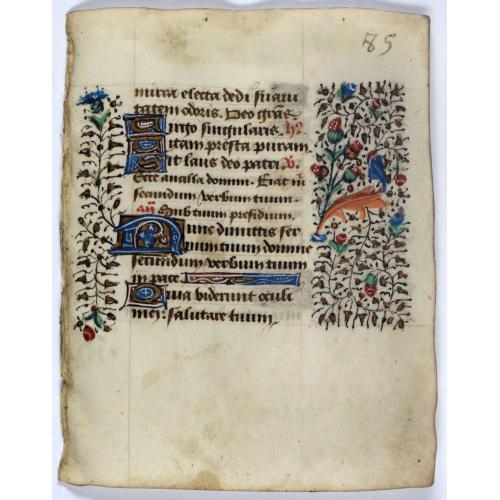 85
mirra electa dedi suaui
tatem odoris. Deo gr̄as
Uirgo singularis. h̄
Uitam presta puram
Sit laus deo patri. v.
Ecce ancilla domini. Fiat m̄
secundum verbum tuum.
añ Sub tuum presidium.
Nunc dimittis ser
uum tuum domine
secundum verbum tuum
in pace
Quia viderunt oculi
mei: salutare tuum.